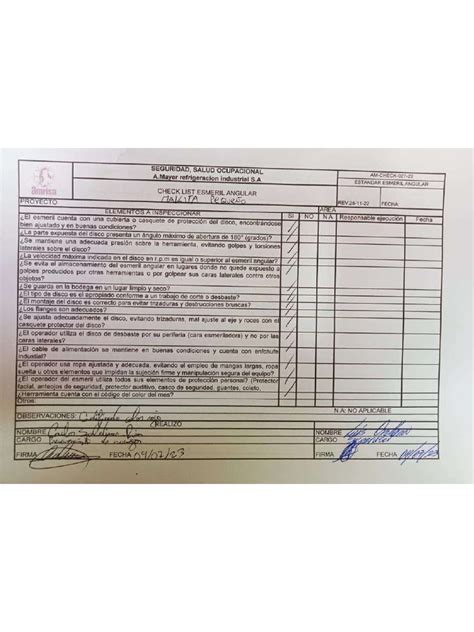 SEGURIDAD, SALUD OCUPACIONAL
A.Mayer refrigeracion industrial S.A
AM-CHECK-021-22
ESTANDAR ESMERIL ANGULAR
CHECK LIST ESMERIL ANGULAR
PROYECTO MAKITA PEQUEÑO
REV.28-11-22 FECHA
ELEMENTOS A INSPECCIONAR
AREA
SI NO N.A Responsable ejecución Fecha
¿El esmeril cuenta con una cubierta o casquete de protección del disco, encontrándose
bien ajustado y en buenas condiciones?
¿La parte expuesta del disco presenta un ángulo máximo de abertura de 180° (grados)?
¿Se mantiene una adecuada presión sobre la herramienta, evitando golpes y torsiones
laterales sobre el disco?
¿La velocidad máxima indicada en el disco en r.p.m es igual o superior al esmeril angular?
¿Se evita el almacenamiento del esmeril angular en lugares donde no quede expuesto a
golpes producidos por otras herramientas o por golpear sus caras laterales contra otros
cuerpos?
¿Se guarda en la bodega en un lugar limpio y seco?
¿El tipo de disco es el apropiado conforme a un trabajo de corte o desbaste?
¿El montaje del disco es correcto para evitar trizaduras y destrucciones bruscas?
¿Los flanges son adecuados?
¿Se ajusta adecuadamente el disco, evitando trizaduras, mal ajuste al eje y roces con el
casquete protector del disco?
¿El operador utiliza el disco de desbaste por su periferia (cara esmeriladora) y no por las
caras laterales?
¿El cable de alimentación se mantiene en buenas condiciones y cuenta con enchufe
industrial?
¿El operador usa ropa ajustada y adecuada, evitando el empleo de mangas largas, ropa
suelta u otros elementos que impidan la sujeción firme y manipulación segura del equipo?
¿El operador del esmeril utiliza todos sus elementos de protección personal? (Protector
facial, anteojos de seguridad, protector auditivo, casco de seguridad, guantes, coleto,
¿Herramienta cuenta con el código del color del mes?
Otros:
N.A: NO APLICABLE
OBSERVACIONES:
REALIZO
NOMBRE Carlos
NOMBRE Luis
CARGO
CARGO
FIRMA FECHA 04/07/23
FIRMA FECHA 04/07/23